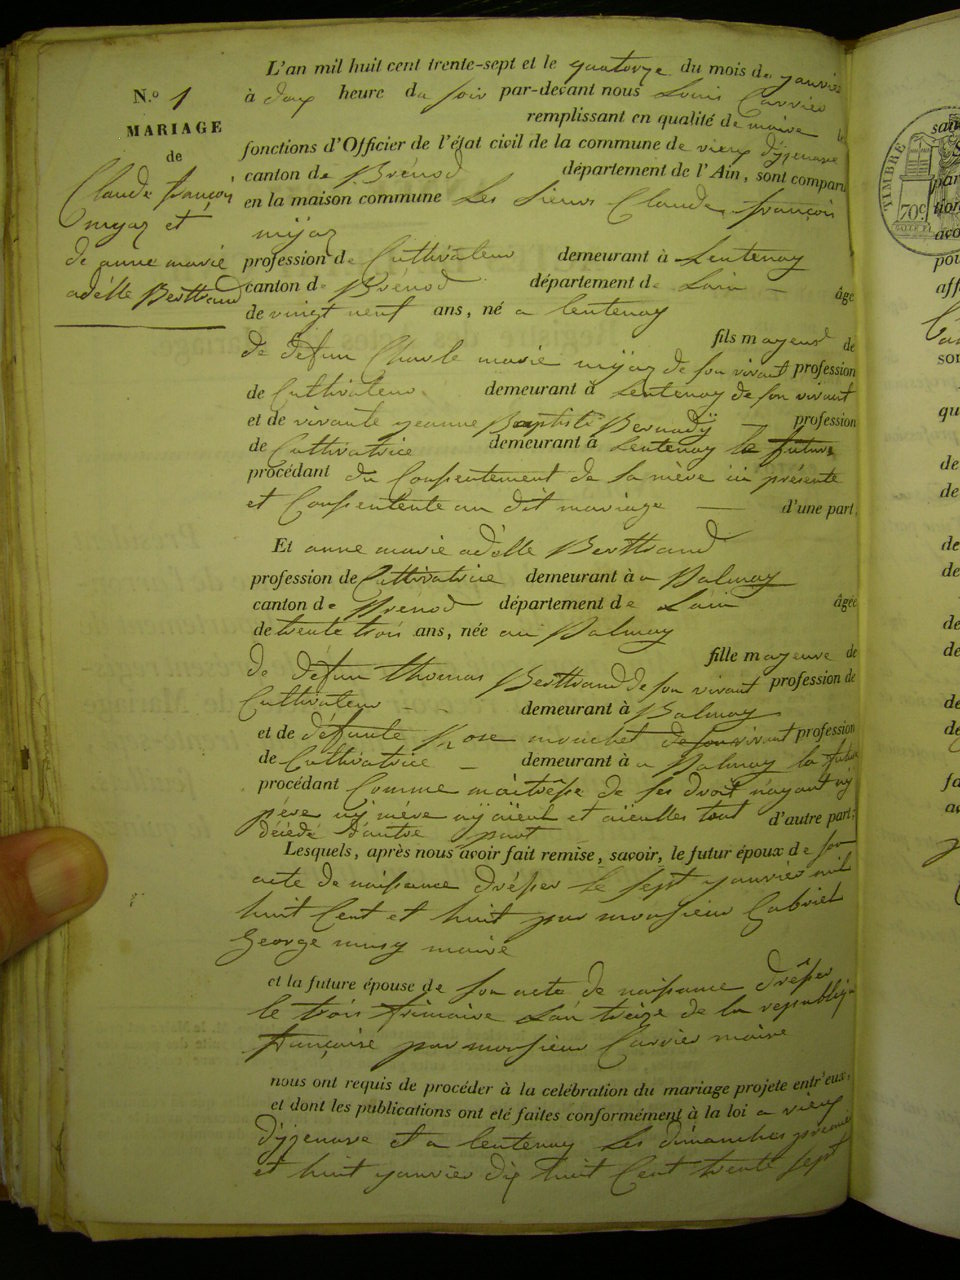 N.o 1
MARIAGE
de
Claude françois
mijaz et
de anne marie
adélle Berttrand
L'an mil huit cent trente-sept et le quatorze du mois de janvier
à deux heure du soir par-devant nous Louis Carrier
remplissant en qualité de maire les
fonctions d'Officier de l'état civil de la commune de vieux d'yzenave
canton de Brénod département de l'Ain, sont comparu
en la maison commune Les Sieurs Claude françois
mijaz
profession de Cultivateur demeurant à Lentenay
canton de Brénod département de Lain âgé
de vingt neuf ans, né a lentenay
fils mayeur de
de défun Charle marie mijaz de son vivant profession
de Cultivateur demeurant à Lentenay de son vivant
et de vivante jeanne Baptiste Bernady profession
de Cultivatrice demeurant à Lentenay le futur
procédant du Consentement de sa mère ici présente
et Consentente au dit mariage d'une part;
Et anne marie adélle Berttrand
profession de Cultivatrice demeurant à a Balmay
canton de Brénod département de Lain âgée
de trente trois ans, née au Balmay
fille mayeure de
de défun thomas Berttrand de son vivant profession de
Cultivateur demeurant à Balmay
et de défunte Rose mouchet de son vivant profession
de Cultivatrice demeurant à a Balmay la future
procédant Comme maîtresse de ses droit n'ayant ny
père ny mère ny aÿeul et aÿeulles tout d'autre part;
décédé d'autre part
Lesquels, après nous avoir fait remise, savoir, le futur époux de son
acte de naissance drésser le sept janvier mil
huit Cent et huit par monsieur Gabriel
George musy maire
et la future épouse de son acte de naissance drésser
le trois frimaire L'an treize de la republiq
française par monsieur Carrier maire
nous ont requis de procéder à la celébration du mariage projete entr'eux,
et dont les publications ont été faites conformément à la loi a vieux
d'yzenave et a lentenay les dimanches premier
et huit janvier dix huit Cent trente sept
TIMBRE
70c